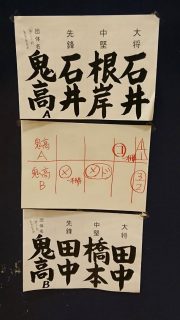 大将
中堅
先鋒
団体名
石井
根岸
石井
鬼高A
鬼高
A
鬼高
B
大将
中堅
先鋒
団体名
田中
橋本
田中
鬼高B